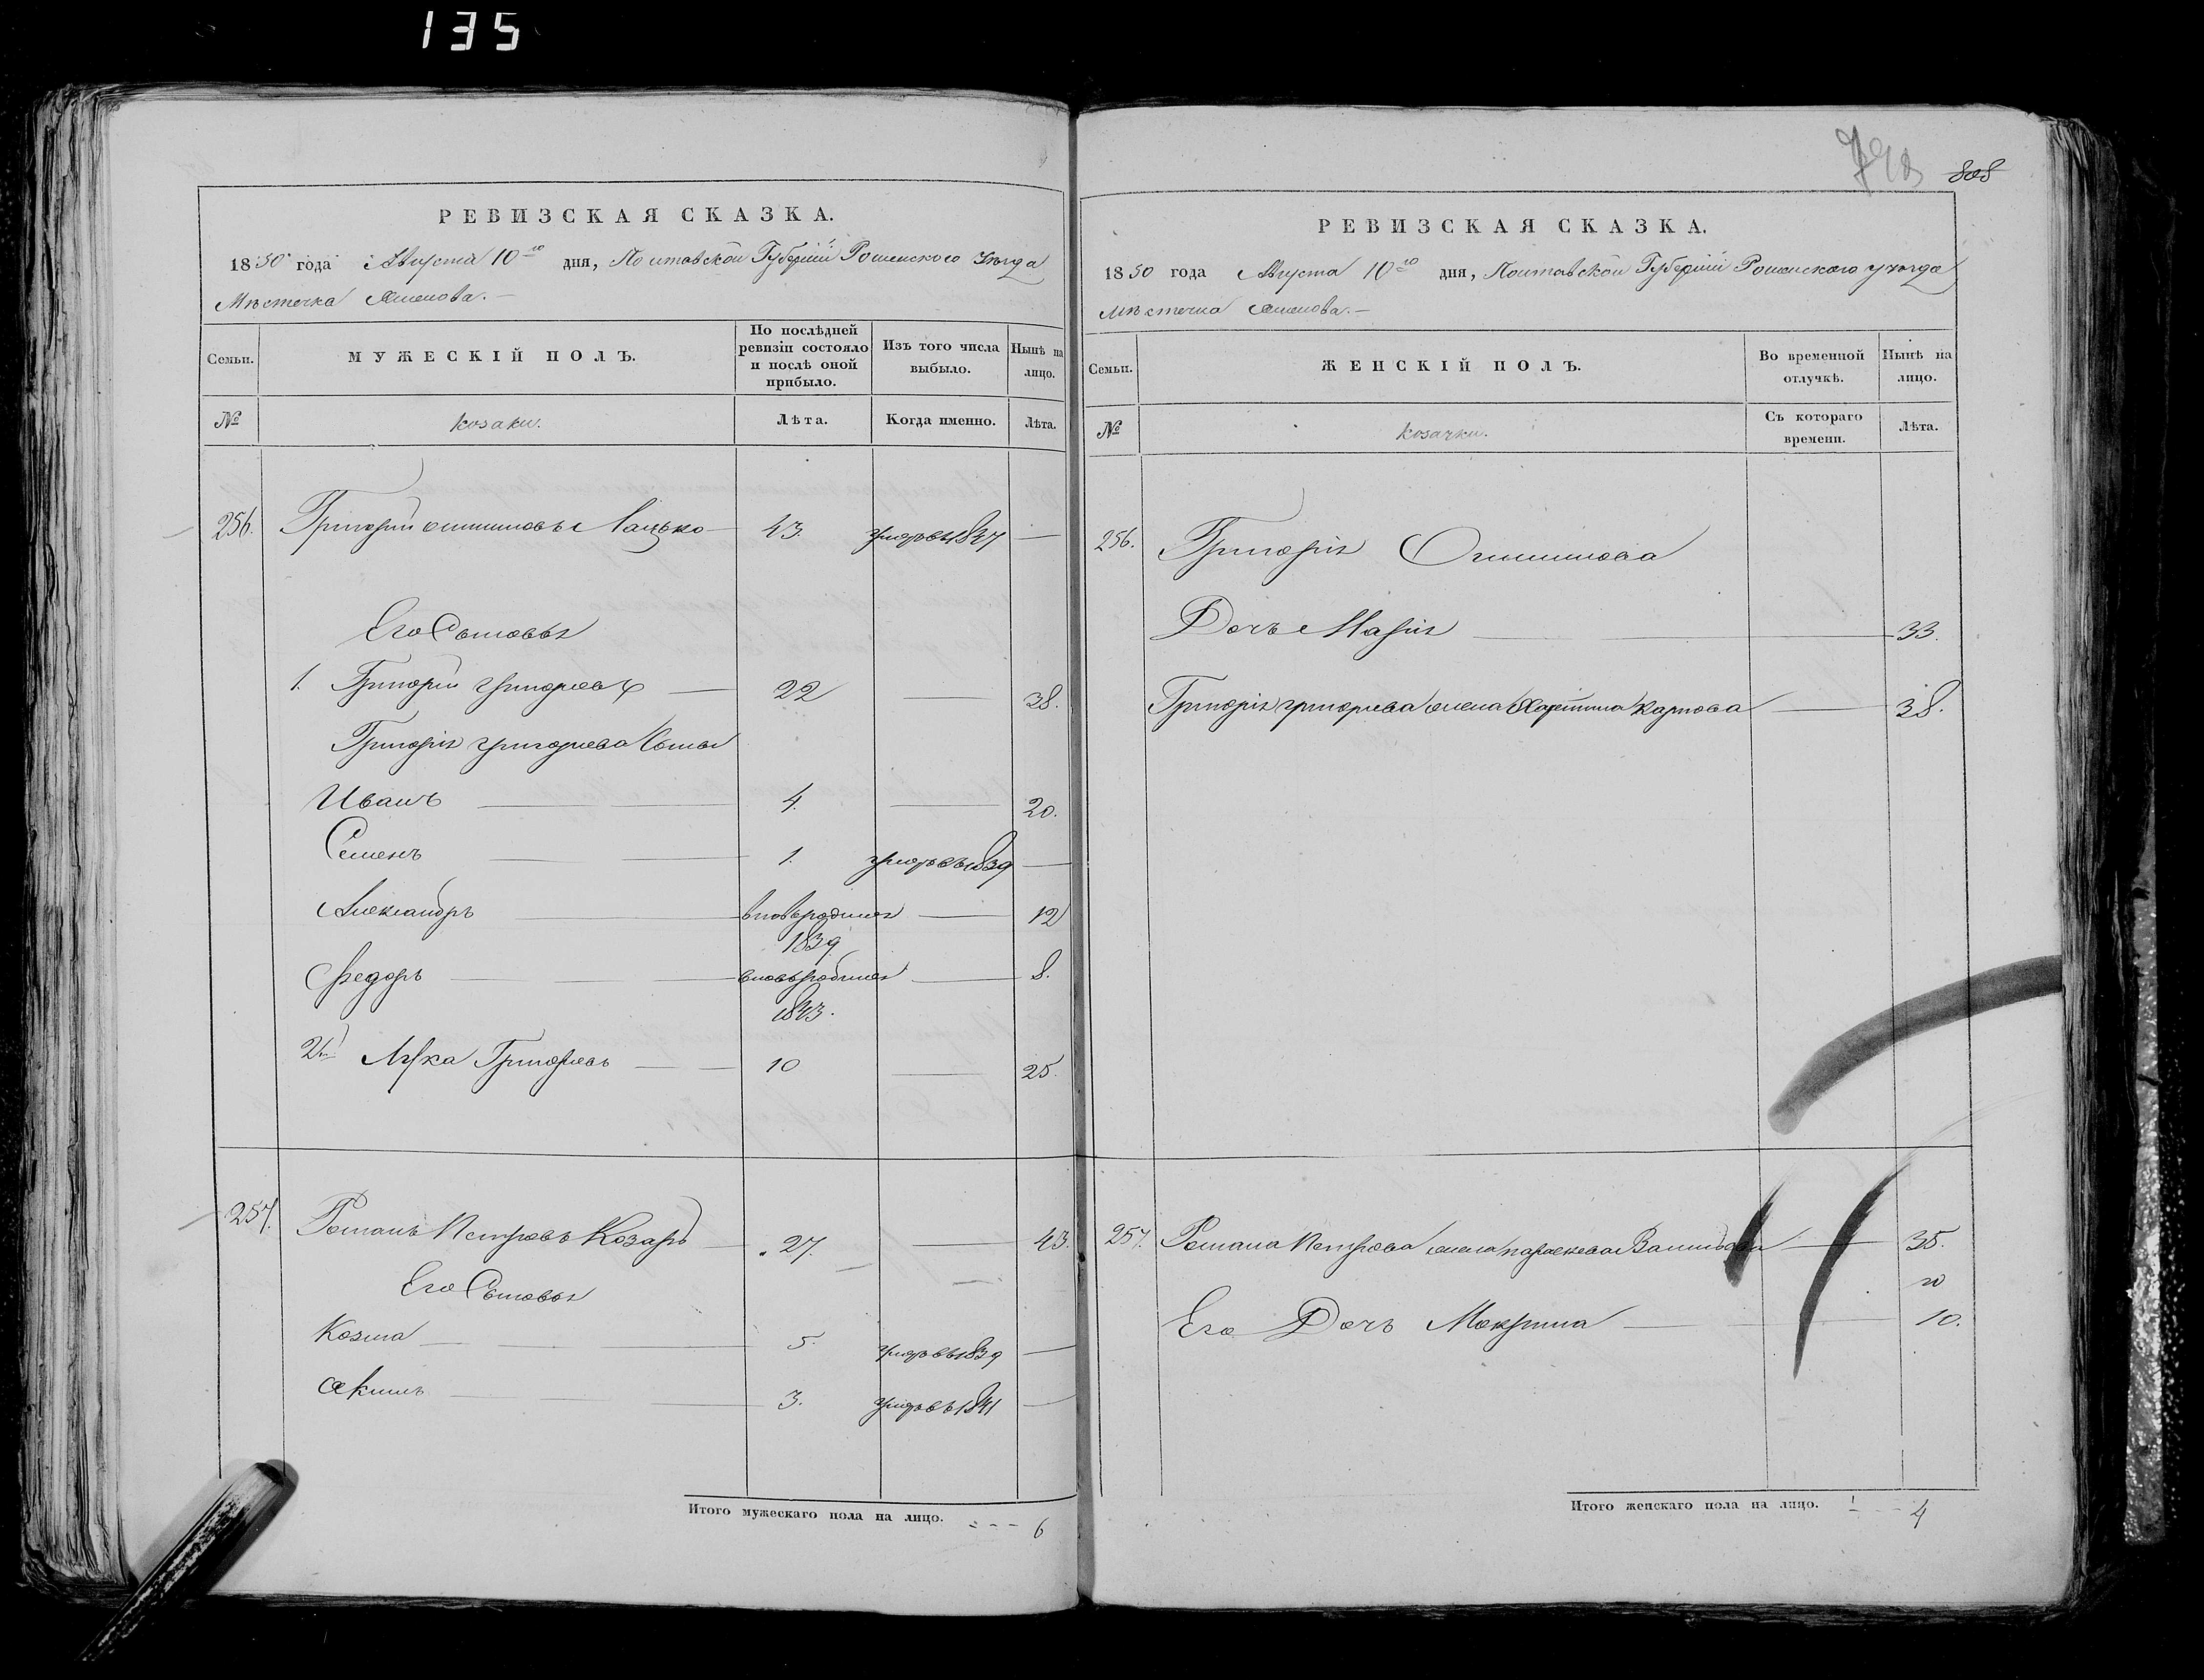 135
РЕВИЗСКАЯ СКАЗКА.
1850 года Августа 10го дня, Полтавской Губерніи Роменского Уѣзда
Мѣстечка Смелова.
Семьи.
МУЖЕСКІЙ ПОЛЪ.
По послѣдней ревизіи состояло и послѣ оной прибыло.
Изъ того числа выбыло.
Нынѣ на лицо.
№
козаки.
Лѣта.
Когда именно.
Лѣта.
256. Григорій Лацько 43. умеръ въ 1847 —
Его Сыновья
1. Григорій Григорьевъ — 22 — 38.
Григорія Григорьева Сыны
Иванъ — 4. — 20.
Семенъ — 1. умеръ въ 1839 —
Александръ — вновьродился — 12
1839
Федоръ — вновьродился — 8.
1843.
2й Лука Григорьевъ — 10 — 25.
257. Романъ Петровъ Козаръ — 27. — 43.
Его Сыновья
Козма — 5. умеръ въ 1839 —
Акимъ — 3. умеръ въ 1841 —
Итого мужескаго пола на лицо. - - - 6
808
РЕВИЗСКАЯ СКАЗКА.
1850 года Августа 10го дня, Полтавской Губерніи Роменского уѣзда
Мѣстечка Смелова.
Семьи.
ЖЕНСКІЙ ПОЛЪ.
Во временной отлучкѣ.
Нынѣ на лицо.
№
козачки.
Съ котораго времени.
Лѣта.
256. Григорія
Дочь Марія — 33.
Григорія Григорьева жена Харитина Карпова — 38.
257. Романа Петрова жена Параскева — 35.
Его Дочь Мокрина — 10.
Итого женскаго пола на лицо. - - - 4